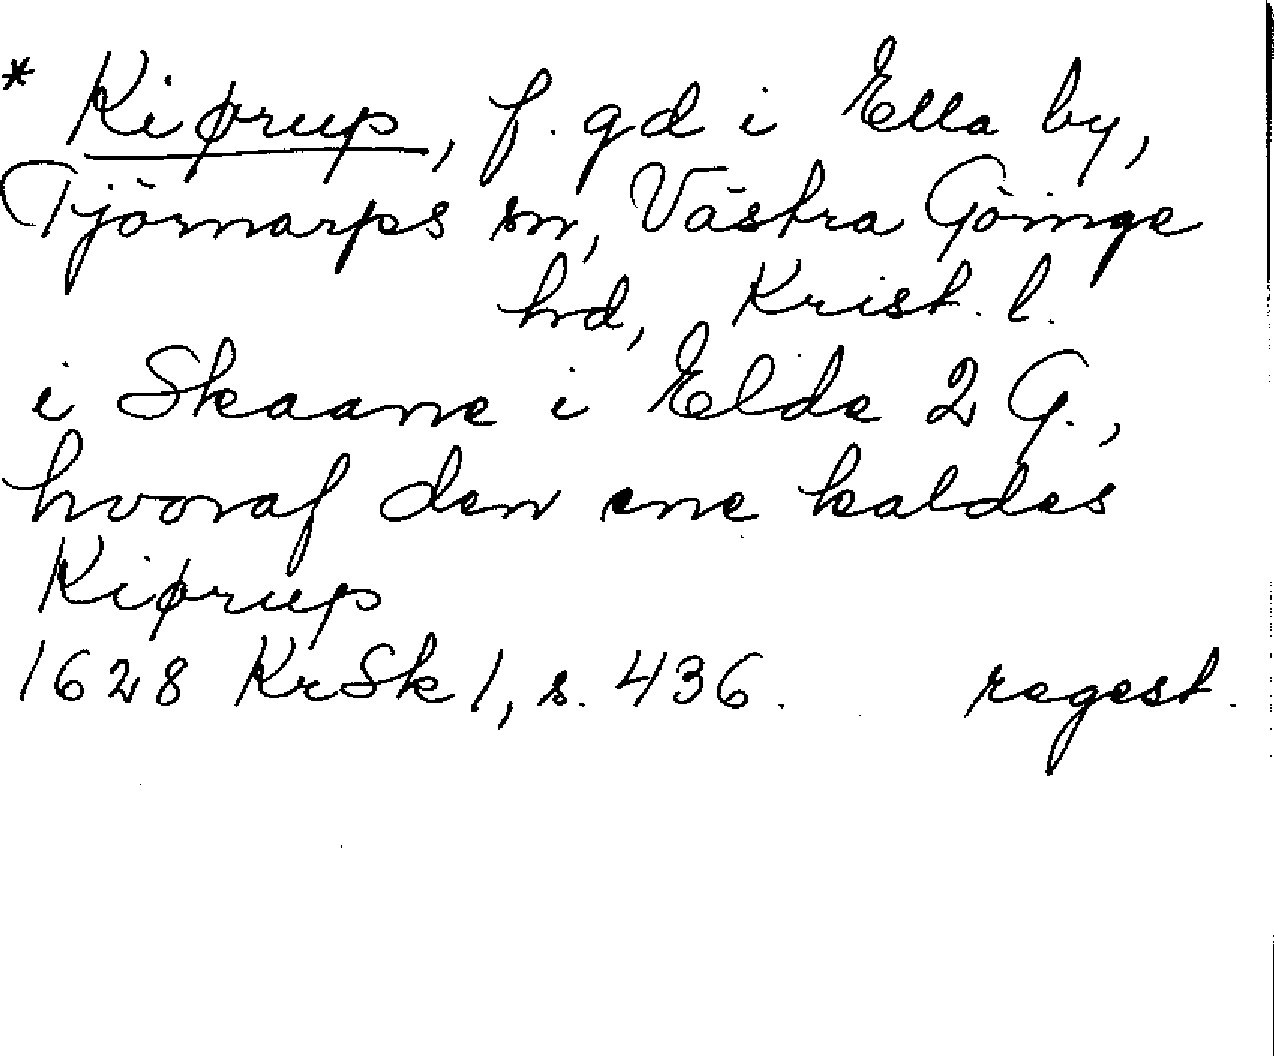 * Kiørup, f. gd i Ella by,
Tjörnarps sn, Västra Göinge
hd, Krist. l.
i Skaane i Elde 2 G.,
hvoraf den ene kaldes
Kiørup
1628 KrSk 1, s. 436. regest.